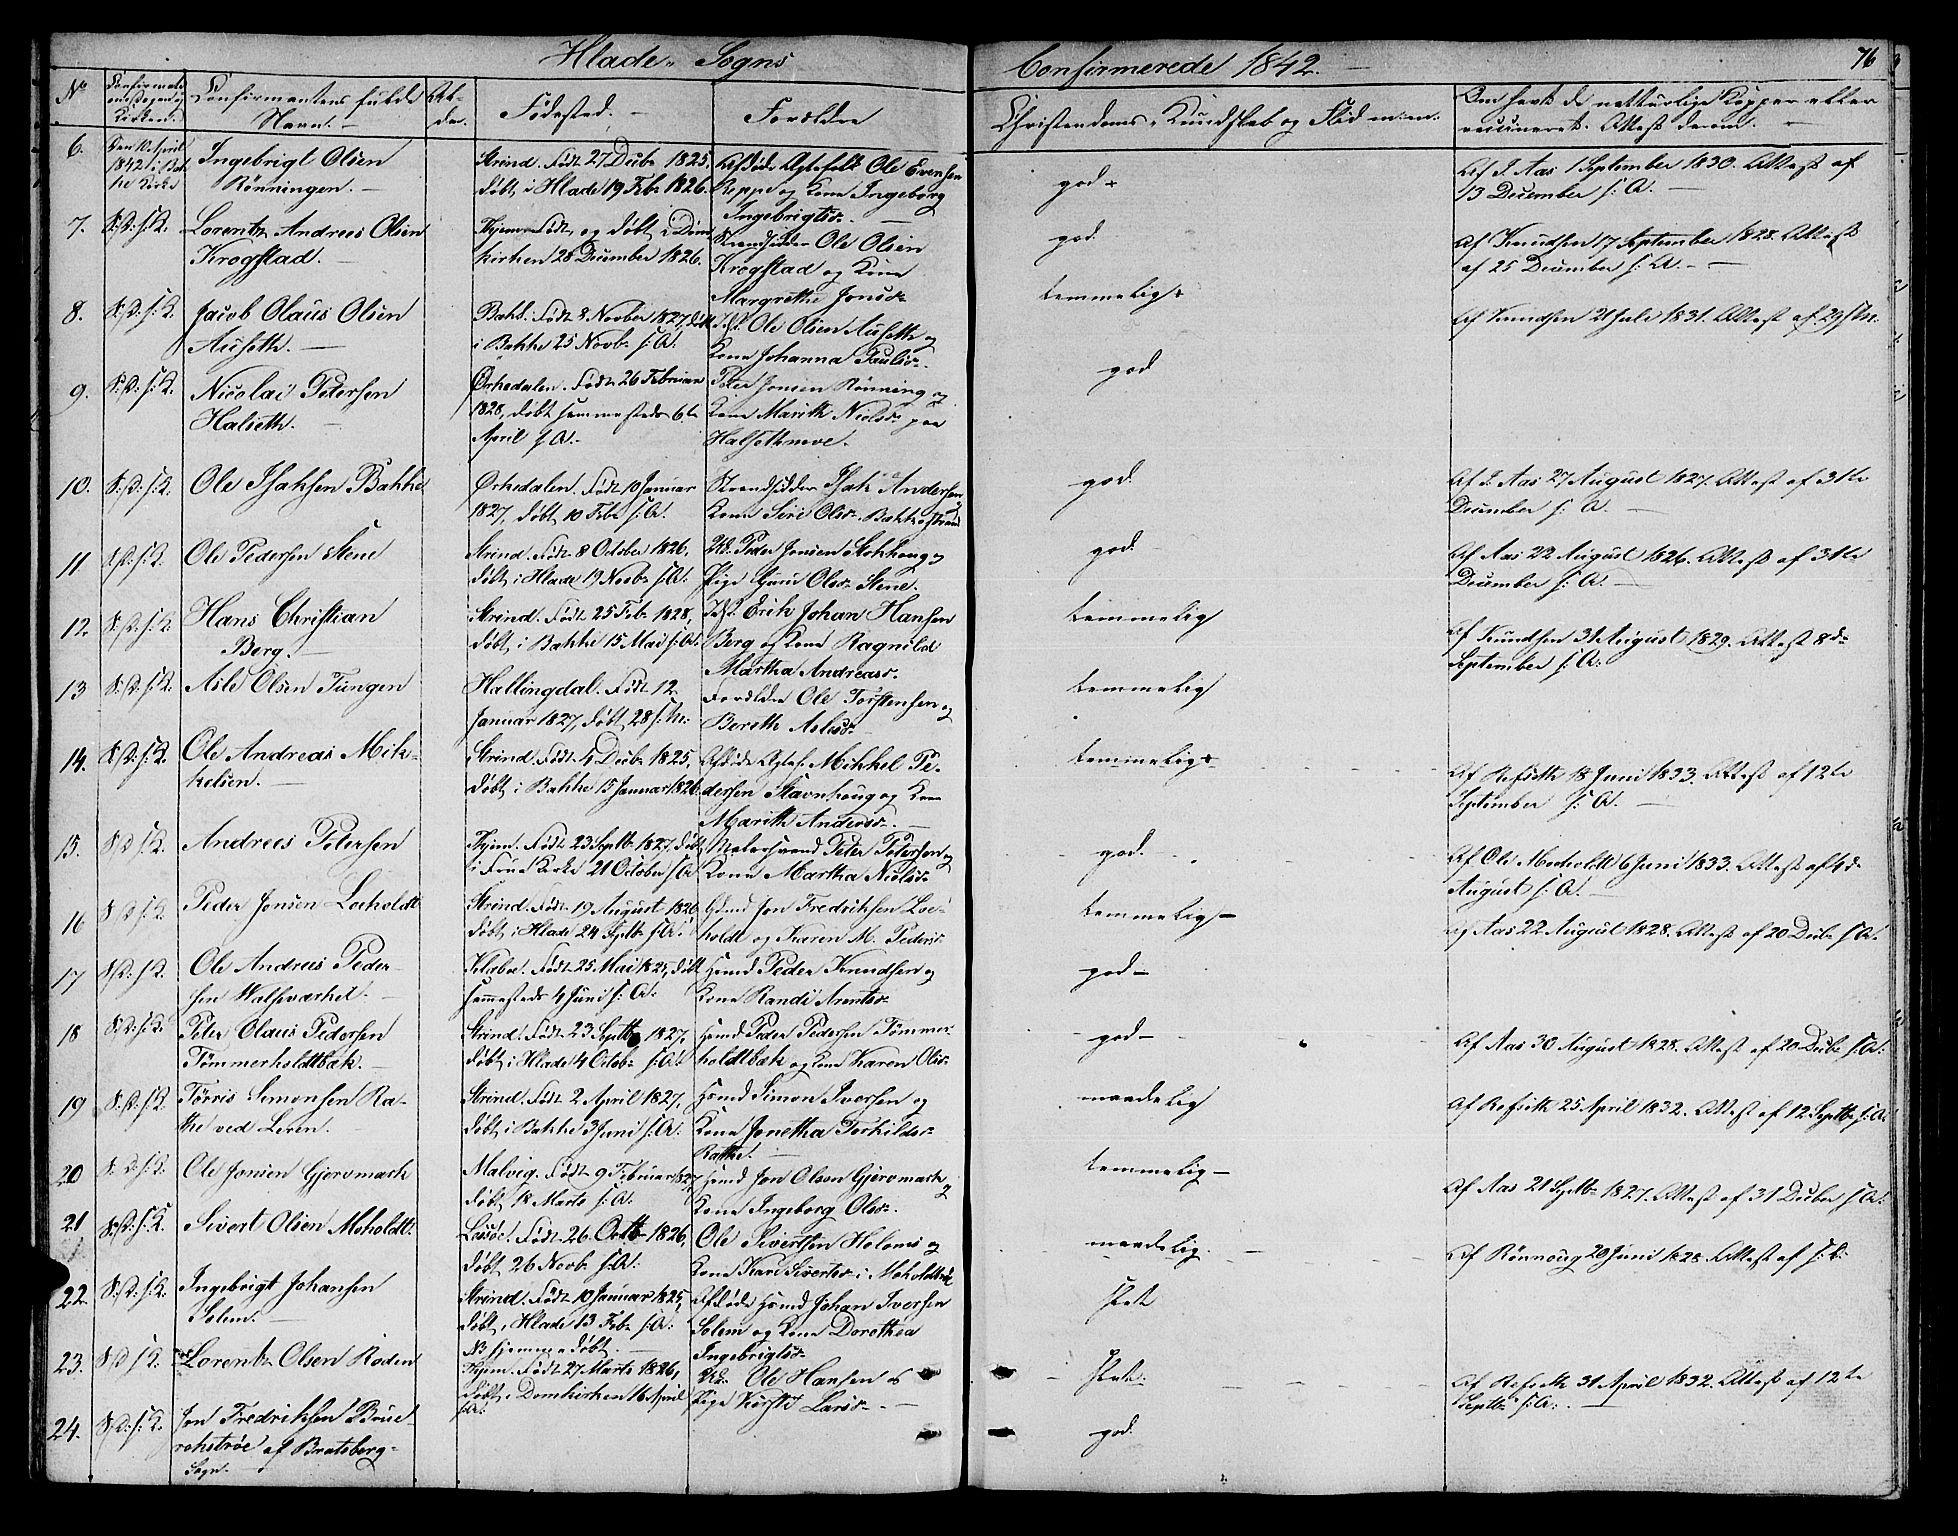 Hlade Sogns
Confirmerede 1842.
76
No
Confirmantens fulde
Navn.
Al-
der.
Fødested.
Forældre
Christendoms Kundskab og Flid m: m:
Om havt de naturlige Kopper eller
vaccineret. Attest derom.
6.
Den 10 April
1842 i Bak
ke Kirke
Ingebrigt Olsen
Rønningen.
Strind. Født 27 Decbr 1825.
døbt i Hlade 19 Febr 1826.
Afdøde Ole Evensen
Reppe og Kone Ingeborg
Ingebrigtsdr.
god
Af J. Aas 1 September 1830. Attest af
13 December s: A.
7.
S: D: s: K.
Lorentz Andreas Olsen
Krogstad.
Hjemmefødt og døbt i Dom
kirken 28 December 1826.
Strandsidder Ole Olsen
Krogstad og Kone
Margrethe Jonsdr
god.
Af Knudsen 17 September 1828. Attest
af 25 December s: A.
8.
S: D: s: K.
Jacob Olaus Olsen
Auseth.
Bakke. Født 8 Novber 1827, døbt
i Bakke 25 Novbr s: A:
Ole Olsen Auseth og
Kone Johanna Paulsdr.
temmelig
Af Knudsen 21 Juli 1831. Attest af 29 s: M.
9.
S: D: s: K.
Nicolai Petersen
Halseth.
Ørkedalen. Født 26 Februar
1828, døbt sammesteds 6te
April s: A.
Peter Jonsen Rønning og
Kone Marith Nielsdr paa
god
10.
S: D: s: K.
Ole Isaksen Bakke
Ørkedalen. Født 10 Januar
1827, døbt 10 Febr s: A:
Strandsidder Isak Andersen
Kone Siri Olsdr. Bakkestrand
god.
Af J. Aas 27 August 1827. Attest af 31te
December s: A.
11
S: D: s: K.
Ole Pedersen Stene
Strind. Født 8 October 1826,
døbt i Hlade 19 Novbr s: A:
Peder Jonsen Stokhaug og
Pige Guri Olsdr. Stene.
god.
Af Aas 22 August 1826. Attest af 31te
December s: A.
12.
S: D: s: K.
Hans Christian
Berg.
Strind. Født 25 Febr 1828,
døbt i Bakke 15 Mai s: A:
Erik Johan Hansen
Berg og Kone Ragnild
Martha Andreasdr.
temmelig
Af Knudsen 31 August 1829. Attest 8de
September s: A:
13
S: D: s: K.
Asle Olsen Tungen
Hallingdal. Født 12
Januar 1827, døbt 28 s: M:
Forældre Ole Torstensen og
Bereth Aslesdr
temmelig
14.
S: D: s: K.
Ole Andreas Mik-
kelsen.
Strind. Født 4 Decbr 1825,
døbt i Bakke 15 Januar 1826
Afdøde Mikkel Pe-
dersen Stavnhaug og Kone
Marith Andersdr.
temmelig
Af Refseth 18 Juni 1833. Attest af 12te
September s: A.
15.
S: D: s: K.
Andreas Petersen
Hjem. Født 23 Septb 1827, døbt
i Frue Kirke 21 October s: A
Peter Petersen og
Kone Martha Nielsdr
god.
Af Ole Moholdt 6 Juni 1833. Attest af 4de
August s: A.
16
S: D: s: K.
Peder Jonsen Loeholdt
Strind. Født 19 August 1826
døbt i Hlade 24 Septb s: A:
Huusmd Jon Fredriksen Loe-
holdt og Karen M. Pedersdr.
temmelig
af Aas 22 August 1828. Attest af 20 Decbr s: A.
17
S: D: s: K
Ole Andreas Peder-
sen Walseværket.
Klæbo. Født 25 Mai 1825, døbt
sammesteds 4 Juni s: A:
Husmd Peder Knudsen og
Kone Randi Arentsdr
god
18
S: D: s: K.
Peter Olaus Pedersen
Tømmerholdtbæk.
Strind. Født 23 Septb 1827,
døbt i Hlade 4 Octobr s: A:
Husmd Peder Pedersen Tømmer-
holdtbæk og Kone Karen Olsdr
god
Af Aas 30 August 1828. Attest af 20 Decbr s: A:
19
S: D: s: K
Tørris Simonsen Ra-
the ved Leren.
Strind. Født 2 April 1827,
døbt i Bakke 3 Juni s: A:
Husmd Simon Iversen og
Kone Jonetha Torkildsdr
Rathe.
maadelig
Af Refseth 25 April 1832. Attest af 12 Septbr s: A:
20
S: D: s: K.
Ole Jonsen Gjervmark
Malvig. Født 9 Februar 1827
døbt 18 Marts s: A:
Husmd Jon Olsen Gjervmark
Kone Ingeborg Olsdr.
temmelig
Af Aas 21 Septbr 1827. Attest af 31 Decber s: A:
21
S: D: s: K.
Sivert Olsen Moholdt.
Født 26 Octb 1826,
døbt 26 Novbr s: A:
Ole Sivertsen Holoms og
Kone Kari Sivertsdr i Moholdt
maadelig.
Af Rønnoug 20 Juni 1828. Attest af
22.
S: D: s: K.
Ingebrigt Johansen
Solem.
Strind. Født 10 Januar 1825,
døbt i Hlade 13 Febr s: A:
NB hjemmedøbt.
Afdøde Husmd Johan Iversen
Solem og Kone Dorothea
Ingebrigtsdr
slet
23.
S: D: s: K.
Lorentz Olsen Roden
Hjem. Født 27 Marts 1826,
døbt i Domkirken 16 April
s: A:
Ole Hansen og
Pige Kirsti Larsdr.
slet.
Af Refseth 31 April 1832. Attest af 12te
Septbr s: A:
24.
S: D: s: K.
Jon Fredriksen Brue-
rakstrøe af Bratsberg
Sogn.
god.